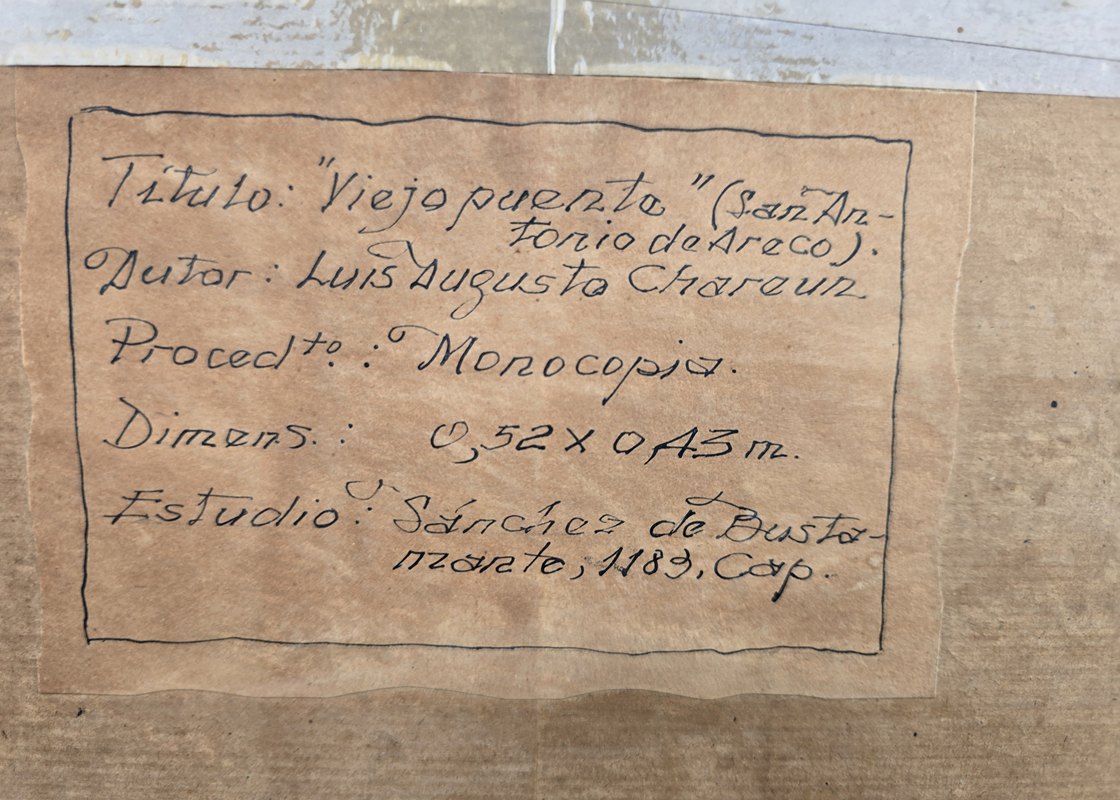 Título: "Viejo puente" (San An-
tonio de Areco).
Autor: Luis Augusto Chareun
Proced.to: Monocopia.
Dimens.: 0,52 x 0,43 m.
Estudio: Sánchez de Busta-
mante, 1183, Cap.